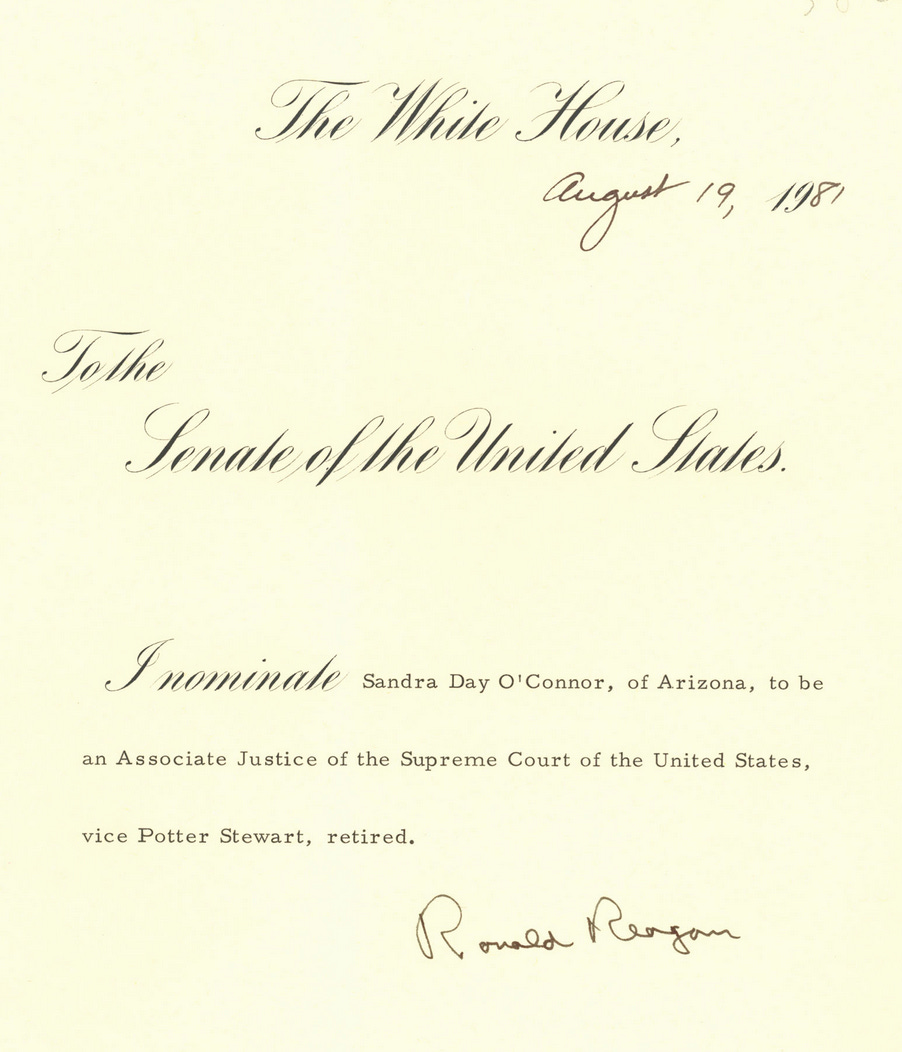 The White House,
August 19, 1981
To the
Senate of the United States.
I nominate Sandra Day O'Connor, of Arizona, to be
an Associate Justice of the Supreme Court of the United States,
vice Potter Stewart, retired.
Ronald Reagan